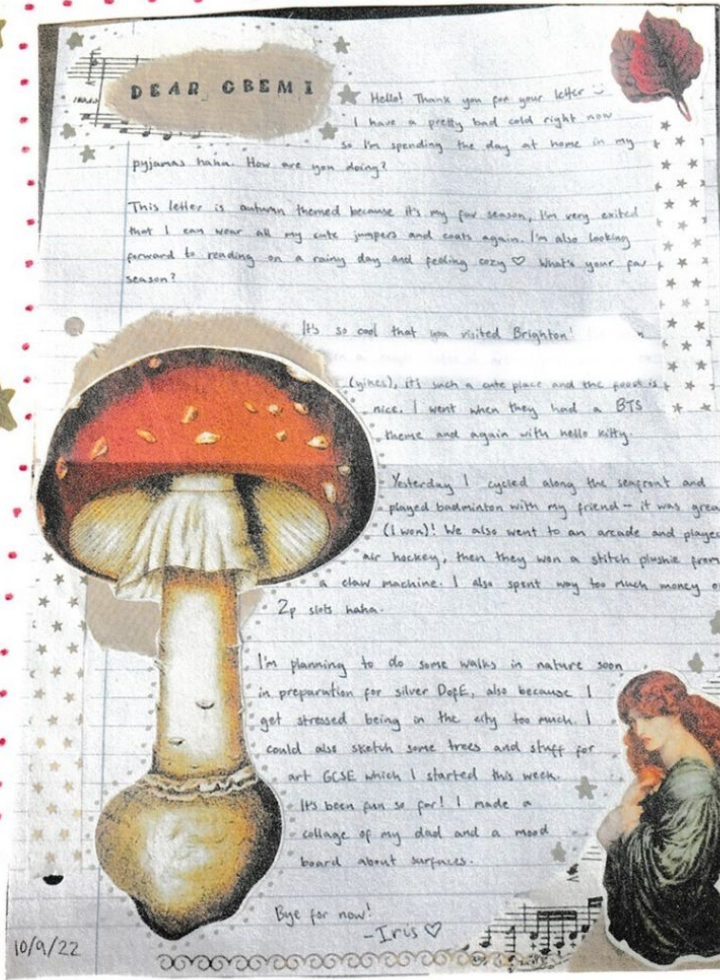 DEAR GBEMI
Hello! Thank you for your letter
I have a pretty bad cold right now
so I'm spending the day at home in my
pyjamas haha. How are you doing?
This letter is autumn themed because it's my fav season, I'm very exited
that I can wear all my cute jumpers and coats again. I'm also looking
forward to reading on a rainy day and feeling cozy ♡ What's your fav
season?
It's so cool that you visited Brighton!
(yikes), it's such a cute place and the food is
nice. I went when they had a BTS
theme and again with hello kitty.
Yesterday I cycled along the seafront and
played badminton with my friend - it was grea
(I won)! We also went to an arcade and playe
air hockey, then they won a stitch plushie from
a claw machine. I also spent way too much money o
2p slots haha.
I'm planning to do some walks in nature soon
in preparation for silver DofE, also because I
get stressed being in the city too much. I
could also sketch some trees and stuff for
art GCSE which I started this week.
It's been fun so far! I made a
collage of my dad and a mood
board about surfaces.
Bye for now!
-Iris ♡
10/9/22